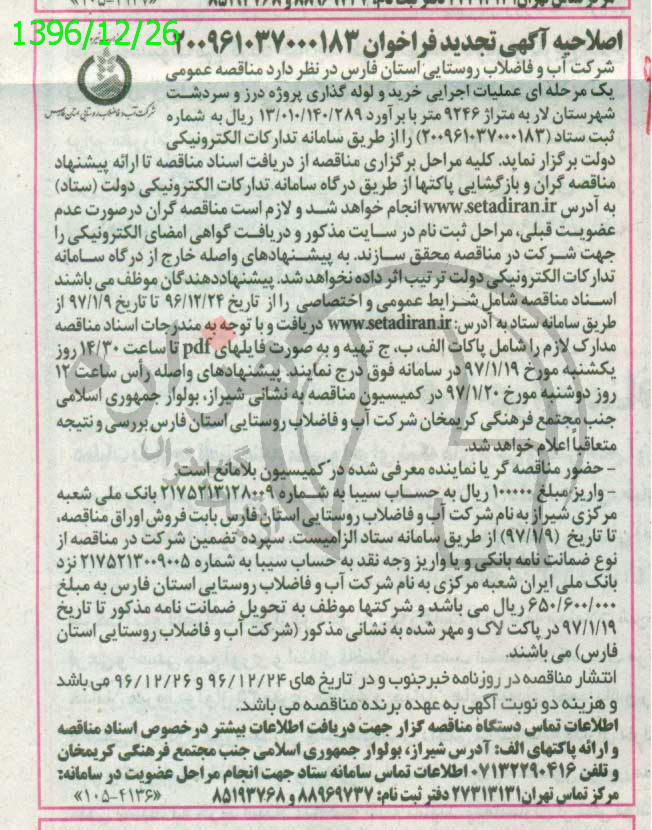 1396/12/26
اصلاحیه آگهی تجدید فراخوان ۲۰۰۹۶۱۰۳۷۰۰۰۱۸۳
شرکت آب و فاضلاب روستایی استان فارس در نظر دارد مناقصه عمومی
یک مرحله ای عملیات اجرایی خرید و لوله گذاری پروژه درز و سردشت
شهرستان لار به متراژ ۹۲۴۶ متر با برآورد ۱۳/۰۱۰/۱۴۰/۲۸۹ ریال به شماره
شرکت آب و فاضلاب روستایی استان فارس
ثبت ستاد (۲۰۰۹۶۱۰۳۷۰۰۰۱۸۳) را از طریق سامانه تدارکات الکترونیکی
دولت برگزار نماید. کلیه مراحل برگزاری مناقصه از دریافت اسناد مناقصه تا ارائه پیشنهاد
مناقصه گران و بازگشایی پاکتها از طریق درگاه سامانه تدارکات الکترونیکی دولت (ستاد)
به آدرس www.setadiran.ir انجام خواهد شد و لازم است مناقصه گران درصورت عدم
عضویت قبلی، مراحل ثبت نام در سایت مذکور و دریافت گواهی امضای الکترونیکی را
جهت شرکت در مناقصه محقق سازند. به پیشنهادهای واصله خارج از درگاه سامانه
تدارکات الکترونیکی دولت ترتیب اثر داده نخواهد شد. پیشنهاددهندگان موظف می باشند
اسناد مناقصه شامل شرایط عمومی و اختصاصی را از تاریخ ۹۶/۱۲/۲۴ تا تاریخ ۹۷/۱/۹ از
طریق سامانه ستاد به آدرس: www.setadiran.ir دریافت و با توجه به مندرجات اسناد مناقصه
مدارک لازم را شامل پاکات الف، ب، ج تهیه و به صورت فایلهای pdf تا ساعت ۱۴/۳۰ روز
یکشنبه مورخ ۹۷/۱/۱۹ در سامانه فوق درج نمایند. پیشنهادهای واصله رأس ساعت ۱۲
روز دوشنبه مورخ ۹۷/۱/۲۰ در کمیسیون مناقصه به نشانی شیراز، بولوار جمهوری اسلامی
جنب مجتمع فرهنگی کریمخان شرکت آب و فاضلاب روستایی استان فارس بررسی و نتیجه
متعاقباً اعلام خواهد شد.
- حضور مناقصه گر یا نماینده معرفی شده در کمیسیون بلامانع است.
- واریز مبلغ ۱۰۰۰۰۰ ریال به حساب سیبا به شماره ۲۱۷۵۲۱۳۱۲۸۰۰۹ بانک ملی شعبه
مرکزی شیراز به نام شرکت آب و فاضلاب روستایی استان فارس بابت فروش اوراق مناقصه،
تا تاریخ (۹۷/۱/۹) از طریق سامانه ستاد الزامیست. سپرده تضمین شرکت در مناقصه از
نوع ضمانت نامه بانکی و یا واریز وجه نقد به حساب سیبا به شماره ۲۱۷۵۲۱۳۰۰۹۰۰۵ نزد
بانک ملی ایران شعبه مرکزی به نام شرکت آب و فاضلاب روستایی استان فارس به مبلغ
۶۵۰/۶۰۰/۰۰۰ ریال می باشد و شرکتها موظف به تحویل ضمانت نامه مذکور تا تاریخ
۹۷/۱/۱۹ در پاکت لاک و مهر شده به نشانی مذکور (شرکت آب و فاضلاب روستایی استان
فارس) می باشند.
انتشار مناقصه در روزنامه خبرجنوب و در تاریخ های ۹۶/۱۲/۲۴ و ۹۶/۱۲/۲۶ می باشد
و هزینه دو نوبت آگهی به عهده برنده مناقصه می باشد.
اطلاعات تماس دستگاه مناقصه گزار جهت دریافت اطلاعات بیشتر درخصوص اسناد مناقصه
و ارائه پاکتهای الف: آدرس شیراز، بولوار جمهوری اسلامی جنب مجتمع فرهنگی کریمخان
و تلفن ۰۷۱۳۲۲۹۰۴۱۶ اطلاعات تماس سامانه ستاد جهت انجام مراحل عضویت در سامانه:
مرکز تماس تهران ۲۷۳۱۳۱۳۱ دفتر ثبت نام: ۸۸۹۶۹۷۳۷ و ۸۵۱۹۳۷۶۸ «۱۰۵-۴۱۳۶»